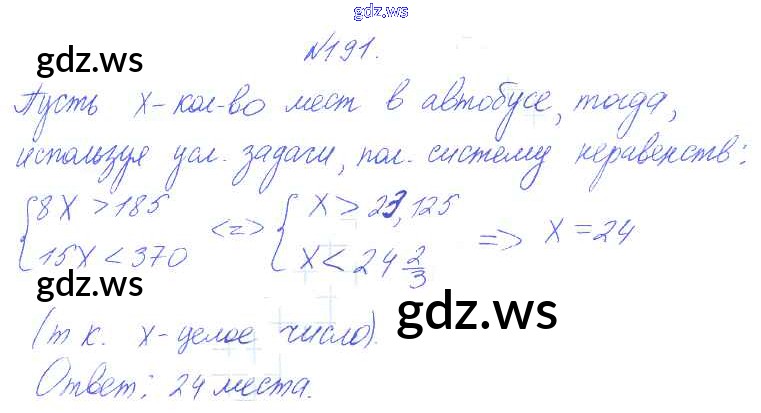 gdz.ws
№191.
gdz.ws
Пусть х-кол-во мест в автобусе, тогда,
используя усл. задачи, пол. систему неравенств:
{8х > 185 <=> {х > 23,125
15х < 370 х < 24 2/3 => х = 24
gdz.ws
gdz.ws
(т к. х-целое число).
Ответ: 24 места.